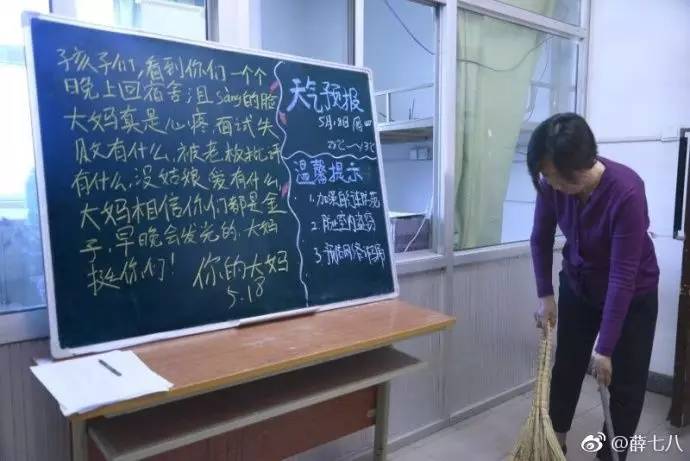 孩子们,看到你们一个个
晚上回宿舍沮sang的脸
大妈真是心疼.面试失
败有什么.被老板批评
有什么.没姑娘爱有什么.
大妈相信你们都是金
子.早晚会发光的.大妈
挺你们!
你的大妈
5.18
天气预报
5月18日周四
温馨提示
1.加强自我防范
2.防止室内盗窃
3.预防网络诈骗
@薛七八